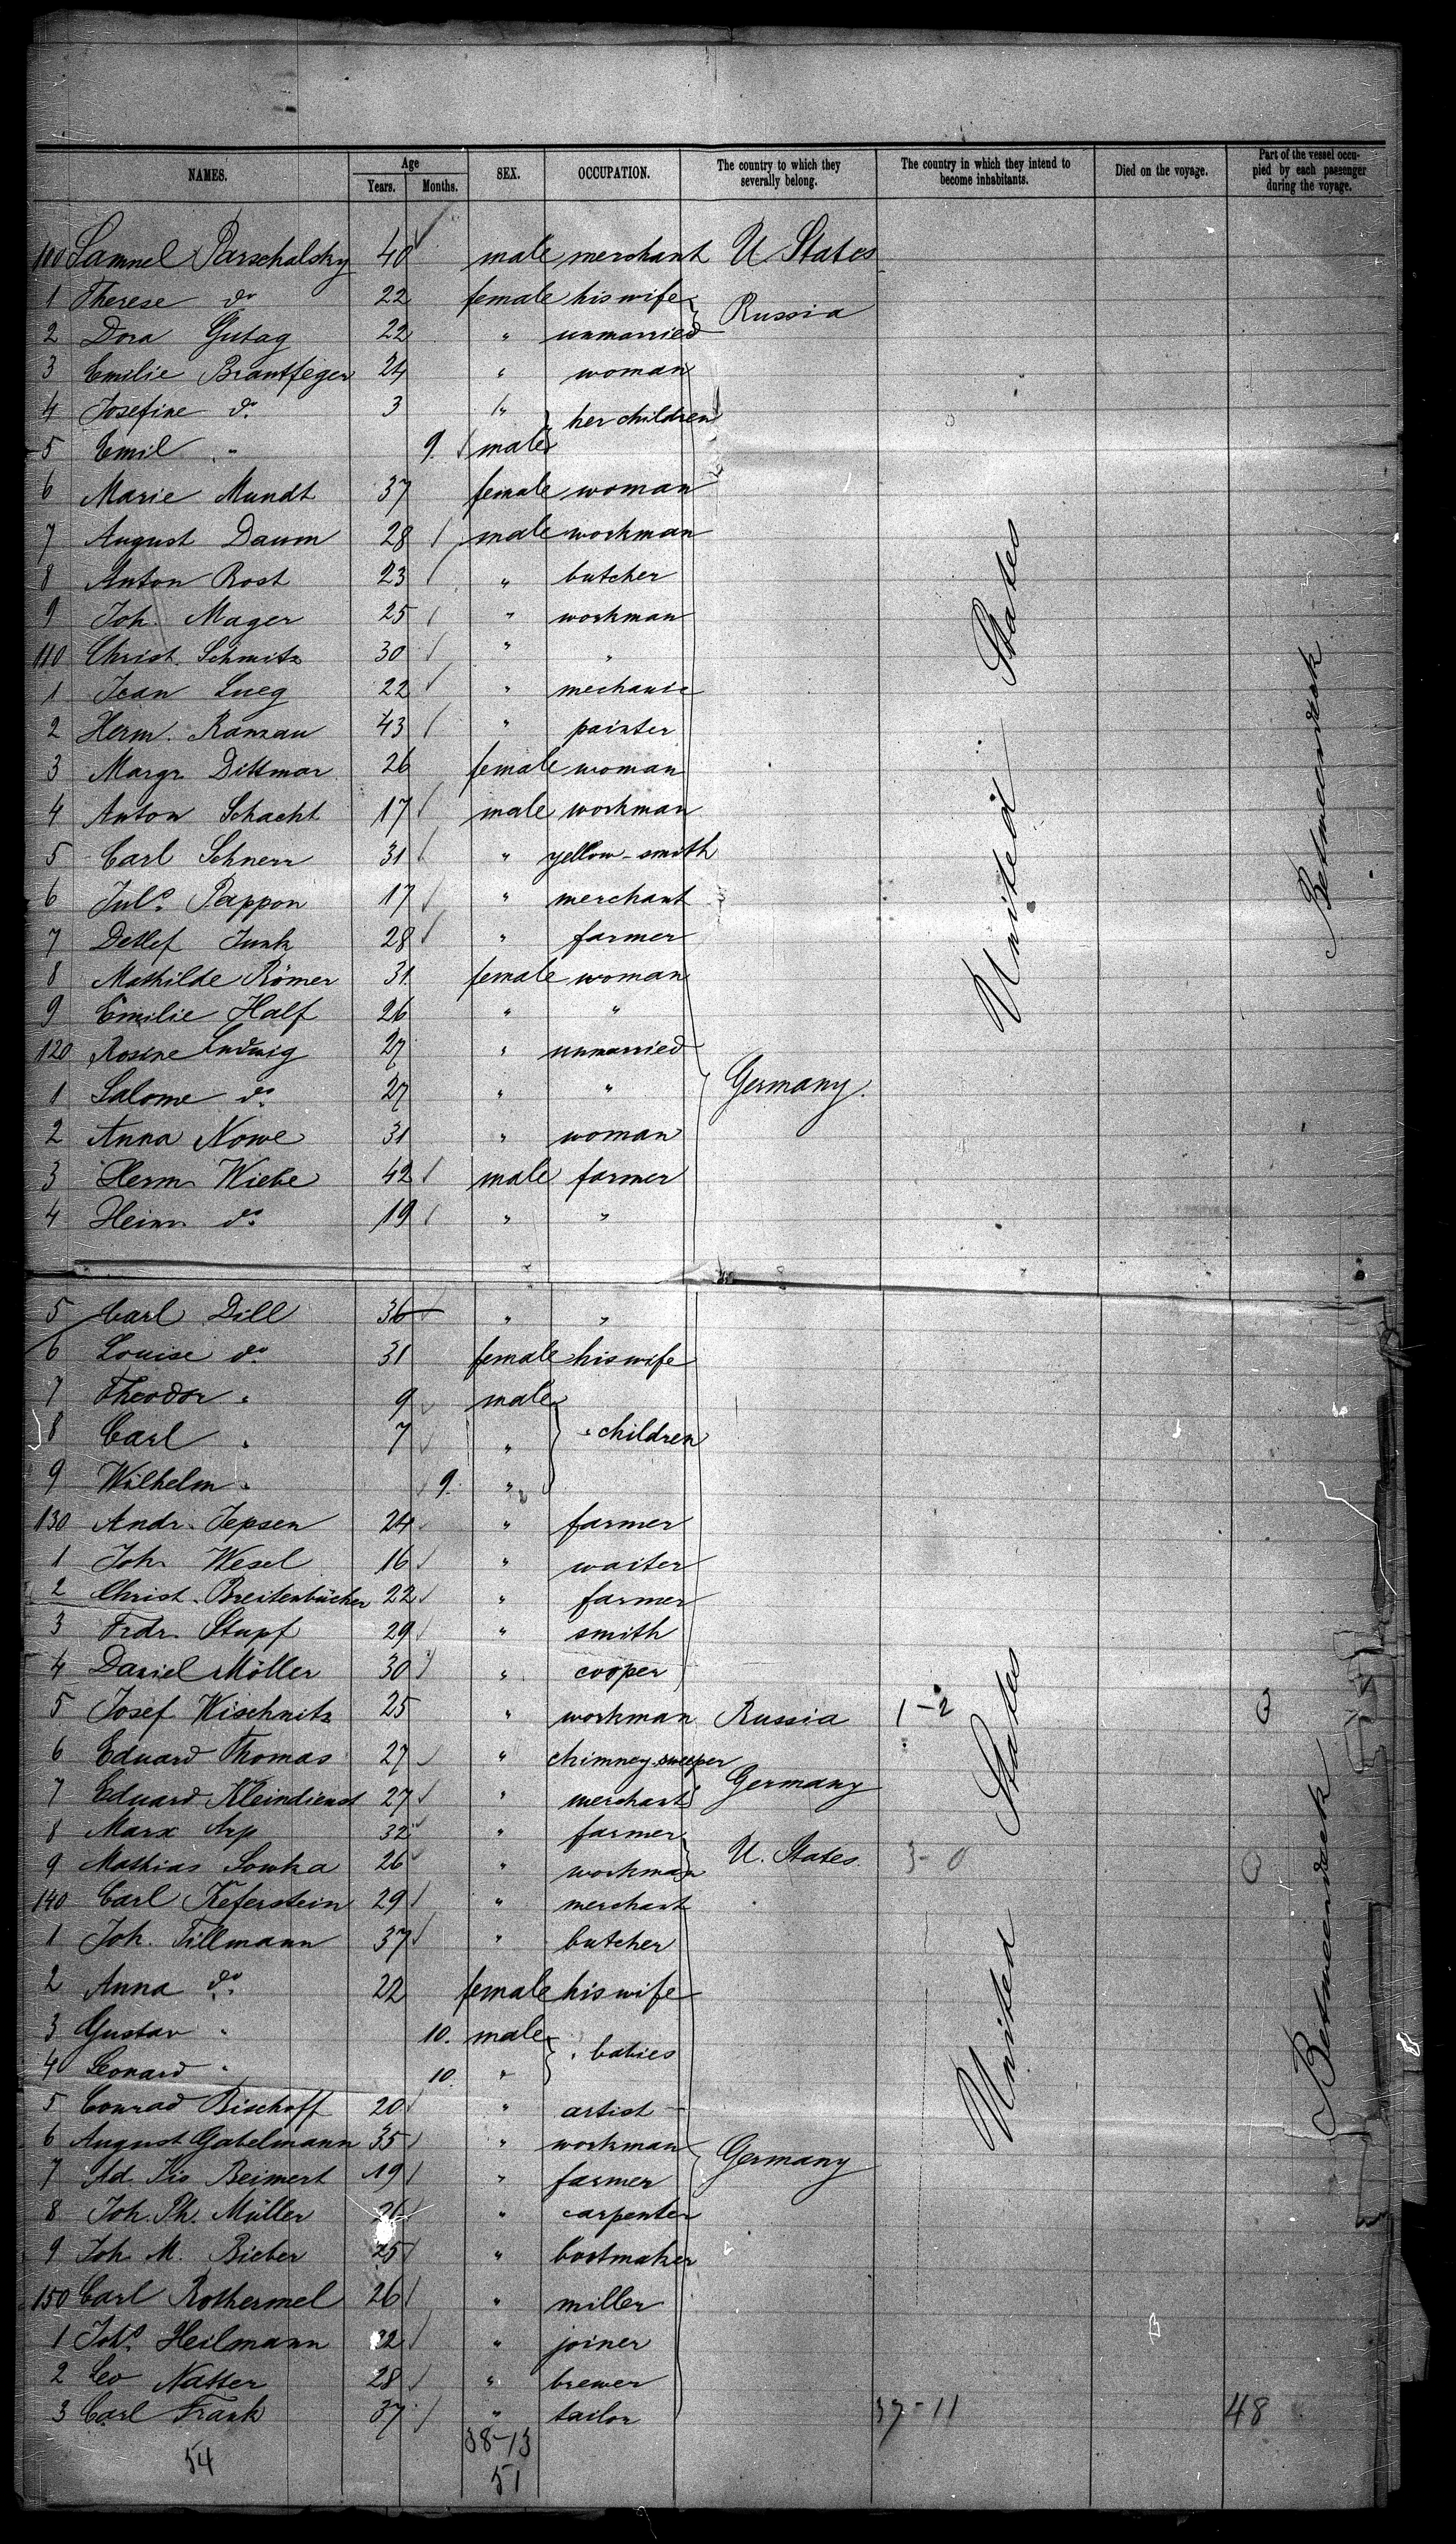 NAMES. Age Years. Months. SEX. OCCUPATION. The country to which they severally belong. The country in which they intend to become inhabitants. Died on the voyage. Part of the vessel occupied by each passenger during the voyage.
100 Samuel Parschalsky 40 male merchant U States
1 Therese do 22 female his wife Russia
2 Dora Gutag 22 " unmarried
3 Emilie Brantfeger 24 " woman
4 Josefine do 3 " her children
5 Emil " 9. male
6 Marie Mundt 37 female woman
7 August Daum 28 male workman
8 Anton Rost 23 " butcher
9 Joh. Mager 25 " workman
110 Christ. Schmitz 30 " "
1 Jean Lueg 22 " mechanic
2 Herm. Ramzau 43 " painter
3 Margr Dittmar 26 female woman
4 Anton Schacht 17 male workman
5 Carl Schnerr 31 " yellow-smith
6 Juls. Pappon 17 " merchant
7 Detlef Junk 28 " farmer
8 Mathilde Römer 31. female woman
9 Emilie Half 26 " "
120 Rosine Ludwig 27 " unmarried
1 Salome do 27 " " Germany.
2 Anna Nowe 31 " woman
3 Herm Wiebe 42 male farmer
4 Heinr do 19 " "
United States
Betweendeck
5 Carl Dill 36 " "
6 Louise do 31 female his wife
7 Theodor " 9 male
8 Carl " 7 " " children
9 Wilhelm " 9. "
130 Andr. Jepsen 24 " farmer
1 Joh Wesel 16 " waiter
2 Christ. Breitenbücher 22 " farmer
3 Frdr. Stupf 29 " smith
4 Daniel Möller 30 " cooper
5 Josef Wischnitz 25 " workman Russia 1-2
6 Eduard Thomas 27 " chimney sweeper
7 Eduard Kleindienst 27 " merchant Germany
8 Marx Arp 32 " farmer
9 Mathias Sowka 26 " workman U. States 3-0
140 Carl Keferstein 29 " merchant
1 Joh. Tillmann 37 " butcher
2 Anna do 22 female his wife
3 Gustav " 10. male " babies
4 Leonard " 10. "
5 Conrad Bischoff 20 " artist
6 August Gabelmann 35 " workman
7 Ad Kis Beimert 19 " farmer Germany
8 Joh. Ph. Müller 26 " carpenter
9 Joh M. Bieber 25 " bootmaker
150 Carl Rothermel 26 " miller
1 Johs Heilmann 22 " joiner
2 Leo Natter 28 " brewer
3 Carl Frank 37 " tailor 37-11 48
United States
Betweendeck
38-13
54
51